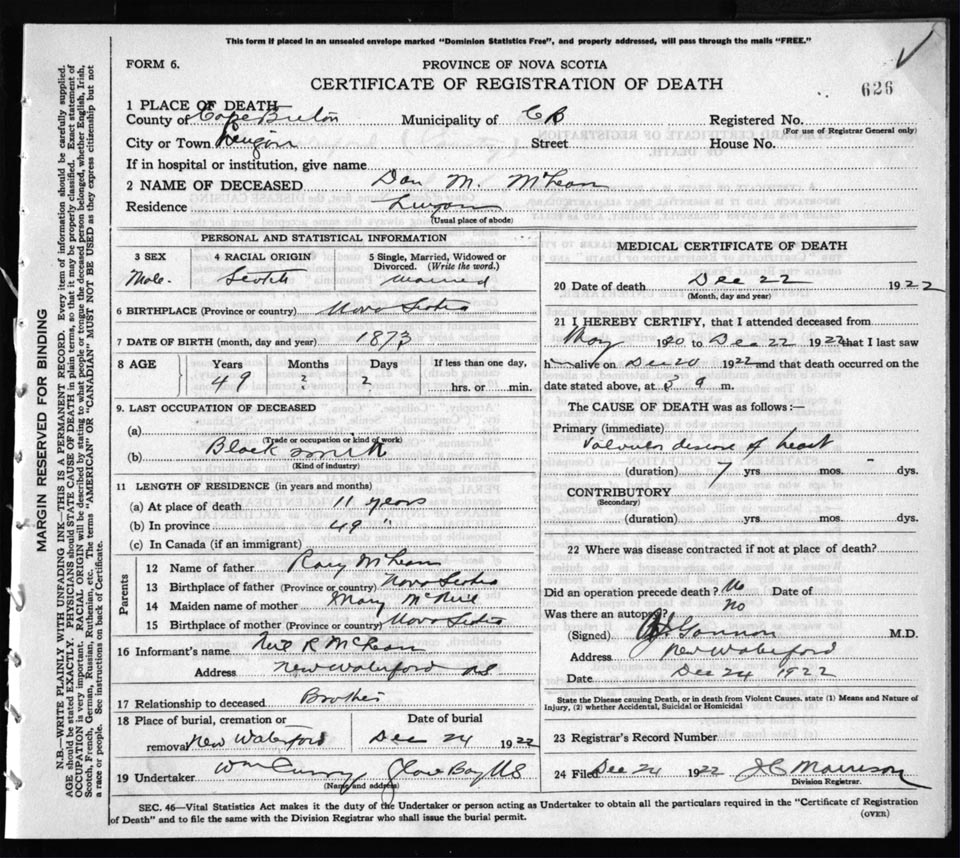 This form if placed in an unsealed envelope marked "Dominion Statistics Free", and properly addressed, will pass through the mails "FREE."
FORM 6.
PROVINCE OF NOVA SCOTIA
CERTIFICATE OF REGISTRATION OF DEATH
626
1 PLACE OF DEATH
County of Cape Breton Municipality of C B Registered No.
(For use of Registrar General only)
City or Town Street House No.
If in hospital or institution, give name
2 NAME OF DECEASED Dan M. McLean
Residence
(Usual place of abode)
PERSONAL AND STATISTICAL INFORMATION
3 SEX 4 RACIAL ORIGIN 5 Single, Married, Widowed or Divorced. (Write the word.)
Male. Scotch Married
6 BIRTHPLACE (Province or country) Nova Scotia
7 DATE OF BIRTH (month, day and year) 1873
8 AGE Years Months Days If less than one day,
49 ? ? hrs. or min.
9. LAST OCCUPATION OF DECEASED
(a)
(Trade or occupation or kind of work)
(b) Black smith
(Kind of industry)
11 LENGTH OF RESIDENCE (in years and months)
(a) At place of death 11 years
(b) In province 49 "
(c) In Canada (if an immigrant)
Parents
12 Name of father Rory McLean
13 Birthplace of father (Province or country) Nova Scotia
14 Maiden name of mother Mary McNeil
15 Birthplace of mother (Province or country) Nova Scotia
16 Informant's name Neil R McLean
Address New Waterford N.S
17 Relationship to deceased Brother
18 Place of burial, cremation or removal New Waterford
Date of burial Dec 24 1922
19 Undertaker Wm Curry Glace Bay N S
(Name and address)
MEDICAL CERTIFICATE OF DEATH
20 Date of death Dec 22 1922
(Month, day and year)
21 I HEREBY CERTIFY, that I attended deceased from
May 1920 to Dec 22 1922 that I last saw
h im alive on Dec 20 1922 and that death occurred on the
date stated above, at m.
The CAUSE OF DEATH was as follows:—
Primary (immediate)
Valvular disease of heart
(duration) 7 yrs. mos. dys.
CONTRIBUTORY
(Secondary)
(duration) yrs. mos. dys.
22 Where was disease contracted if not at place of death?
Did an operation precede death? No Date of
Was there an autopsy? No
(Signed) Gannon M.D.
Address New Waterford
Date Dec 24 1922
State the Disease causing Death, or in death from Violent Causes, state (1) Means and Nature of
Injury, (2) whether Accidental, Suicidal or Homicidal
23 Registrar's Record Number
24 Filed Dec 24 1922 J C Morrison
Division Registrar.
SEC. 46—Vital Statistics Act makes it the duty of the Undertaker or person acting as Undertaker to obtain all the particulars required in the "Certificate of Registration
of Death" and to file the same with the Division Registrar who shall issue the burial permit.
(OVER)
MARGIN RESERVED FOR BINDING
N.B.—WRITE PLAINLY WITH UNFADING INK—THIS IS A PERMANENT RECORD. Every item of information should be carefully supplied.
AGE should be stated EXACTLY. PHYSICIANS should STATE CAUSE OF DEATH in plain terms, so that it may be properly classified. Exact statement of
OCCUPATION is very important. RACIAL ORIGIN will be described by stating to what people or tongue the deceased person belonged, whether English, Irish,
Scotch, French, German, Russian, Ruthenian, etc. The terms "AMERICAN" OR "CANADIAN" MUST NOT BE USED as they express citizenship but not
a race or people. See instructions on back of Certificate.